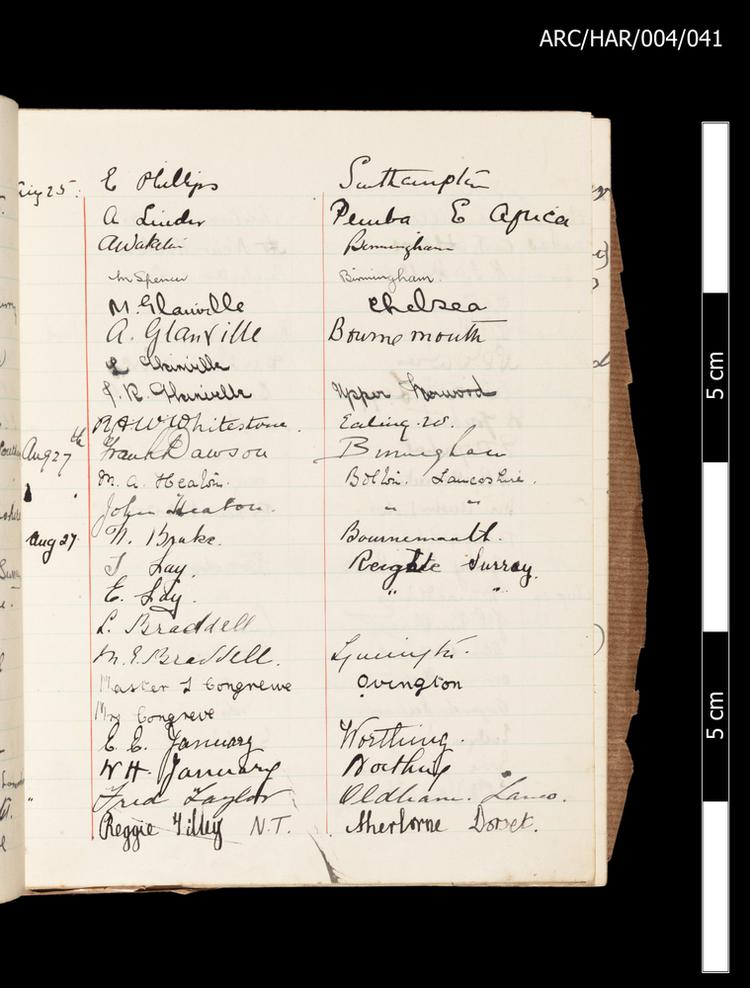 ARC/HAR/004/041
Aug 25. E Phillips Southampton
A Linder Pemba E Africa
A Wakelin Birmingham
Spencer Birmingham
M. Glanville Chelsea
A. Glanville Bournemouth
Glanville
J. R. Glanville Upper Norwood
R A W Whitestone. Ealing. W.
Aug 27th Frank Dawson Birmingham
M. A. Heaton. Bolton. Lancashire.
John Heaton. " "
Aug 27 Drake. Bournemouth.
Lay. Reigate Surrey.
E. Lay. " "
L. Braddell
M. E. Braddell. Lymington.
Master J Congreve Ovington
Mrs Congreve
E E. January Worthing.
W H. January Worthing
" Fred Taylor Oldham. Lancs.
Reggie Tilley N.T. Sherborne Dorset.
5 cm
5 cm